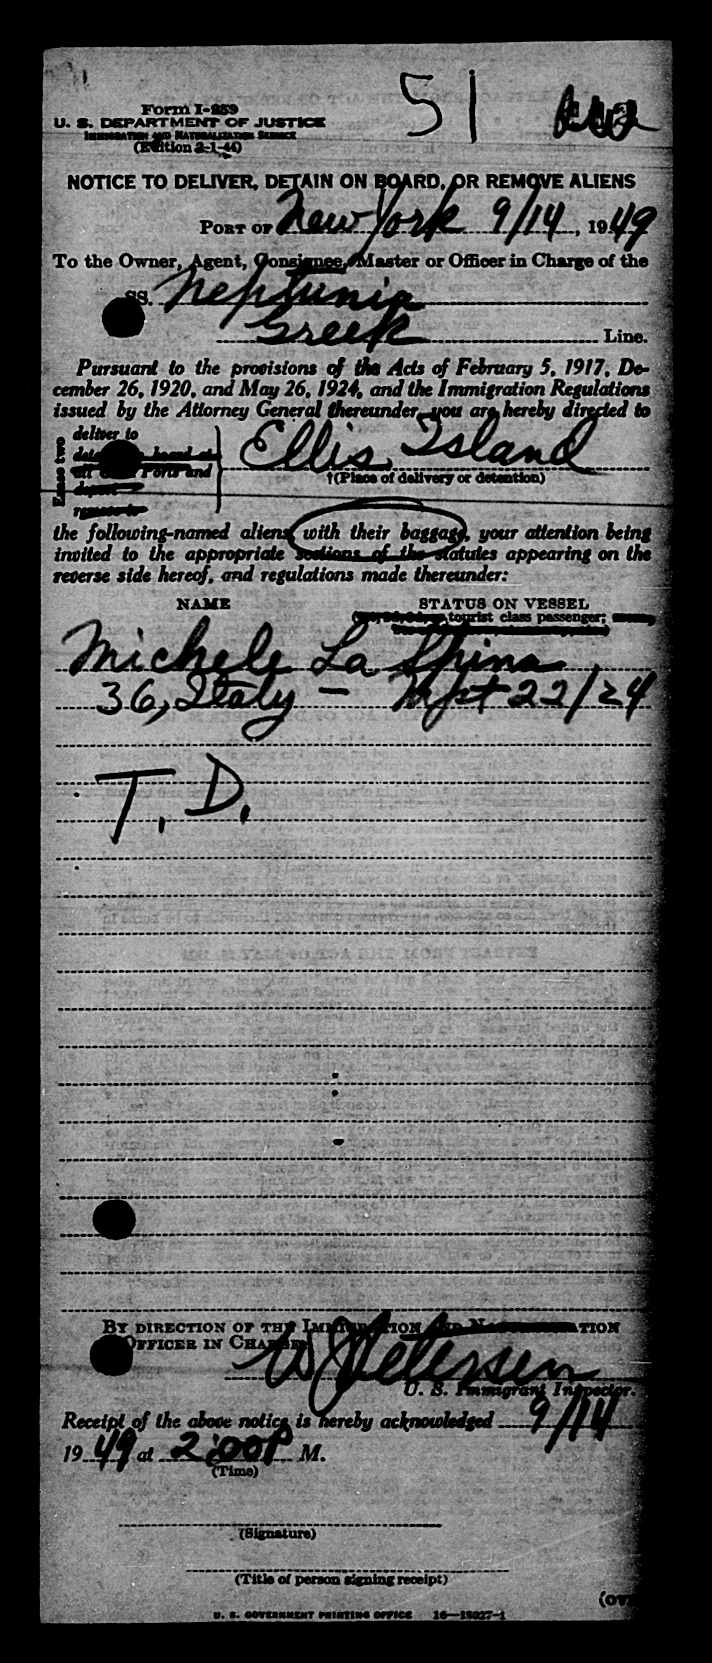 51
Form I-259
U. S. DEPARTMENT OF JUSTICE
IMMIGRATION AND NATURALIZATION SERVICE
(Edition 2-1-44)
NOTICE TO DELIVER, DETAIN ON BOARD, OR REMOVE ALIENS
PORT OF New York 9/14, 1949
To the Owner, Agent, Consignee, Master or Officer in Charge of the
SS. Neptunia
Greek Line.
Pursuant to the provisions of the Acts of February 5, 1917, De-
cember 26, 1920, and May 26, 1924, and the Immigration Regulations
issued by the Attorney General thereunder, you are hereby directed to
deliver to
Ellis Island
†(Place of delivery or detention)
the following-named aliens, with their baggage, your attention being
invited to the appropriate sections of the statutes appearing on the
reverse side hereof, and regulations made thereunder:
NAME STATUS ON VESSEL
tourist class passenger;
Michele La Spina
36, Italy - Mft 22/24
T. D.
BY DIRECTION OF THE IMMIGRATION AND NATURALIZATION
OFFICER IN CHARGE
W J Petersen
U. S. Immigrant Inspector.
Receipt of the above notice is hereby acknowledged 9/14
1949 at 2:00P M.
(Time)
(Signature)
(Title of person signing receipt)
U. S. GOVERNMENT PRINTING OFFICE 16—15027-1